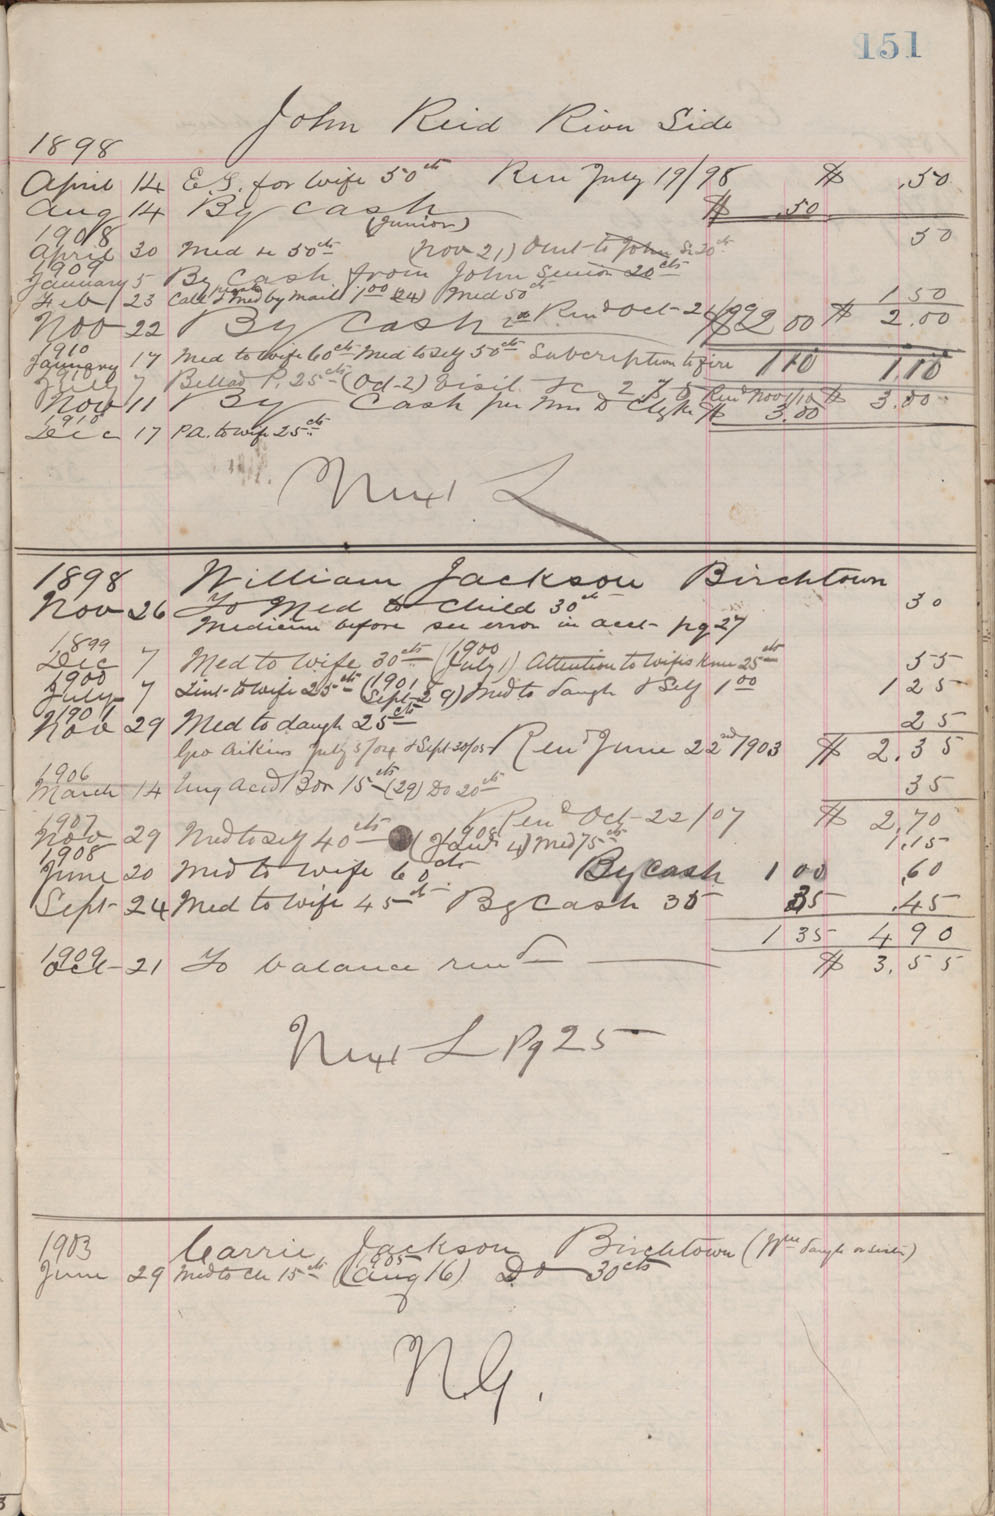 151
John Reid River Side
1898
April 14 E.S. for wife 50cts Ren July 19/98 $ .50
Aug 14 By Cash $ .50
(Junior)
1908
April 30 Med 50cts (Nov 21) Oint to John Sr 20cts 50
1909
January 5 By Cash from John Senior 20cts
Feb 23 Call & Med by mail 1.00 (24) Med 50cts 1 50
Nov 22 By Cash Rend Oct 26/09 $2 00 $ 2.00
1910
January 17 Med to wife 60cts Med to Self 50cts Subscription to fire 1 10 1.10
1910
July 7 Bellad P. 25cts (Oct 2) Visit 2 7 5 Rend Nov 1/10 $ 3.00
Nov 11 By Cash per Mr D $ 3.00
1910
Dec 17 P.A. to wife 25cts
Next L
1898 William Jackson Birchtown
Nov 26 To Med to Child 30cts 30
Medicine before see error in acct pg 27
1899
Dec 7 Med to Wife 30cts (1900 July 1) Attention to Wifes Knee 25cts 55
1900
July 7 Lint to Wife 25cts (1901 Sept 29) Med to daugh & Self 1 00 1 25
1901
Nov 29 Med to daugh 25cts 25
Geo Aikins July 5/04 & Sept 30/05 Rend June 22nd 1903 $ 2.35
1906
March 14 Ung Acid Bor 15cts (29) Do 20cts 35
Rend Oct 22/07 $ 2,70
1907
Nov 29 Med to self 40cts (1908 Jany 4) Med 75cts 1.15
1908
June 20 Med to Wife 60cts By Cash 1 00 ,60
Sept 24 Med to Wife 45cts By Cash 35 35 .45
1 35 4 90
1909
Oct 21 To balance rend $ 3.55
Next L Pg 25
1903 Carrie Jackson Birchtown (Wm daugh or sister)
June 29 Med to Ch 15cts (1905 Aug 16) Do 30cts
N.G.